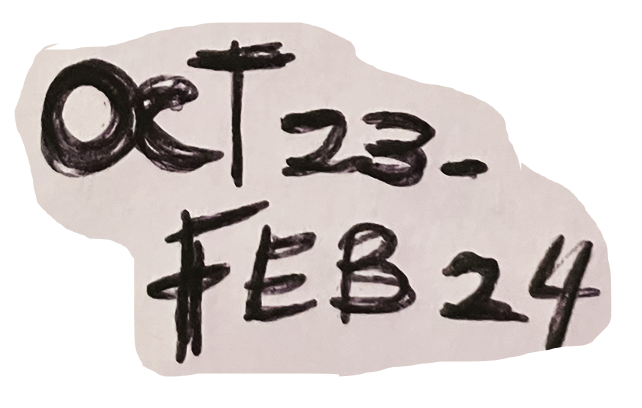 OCT 23-
FEB 24